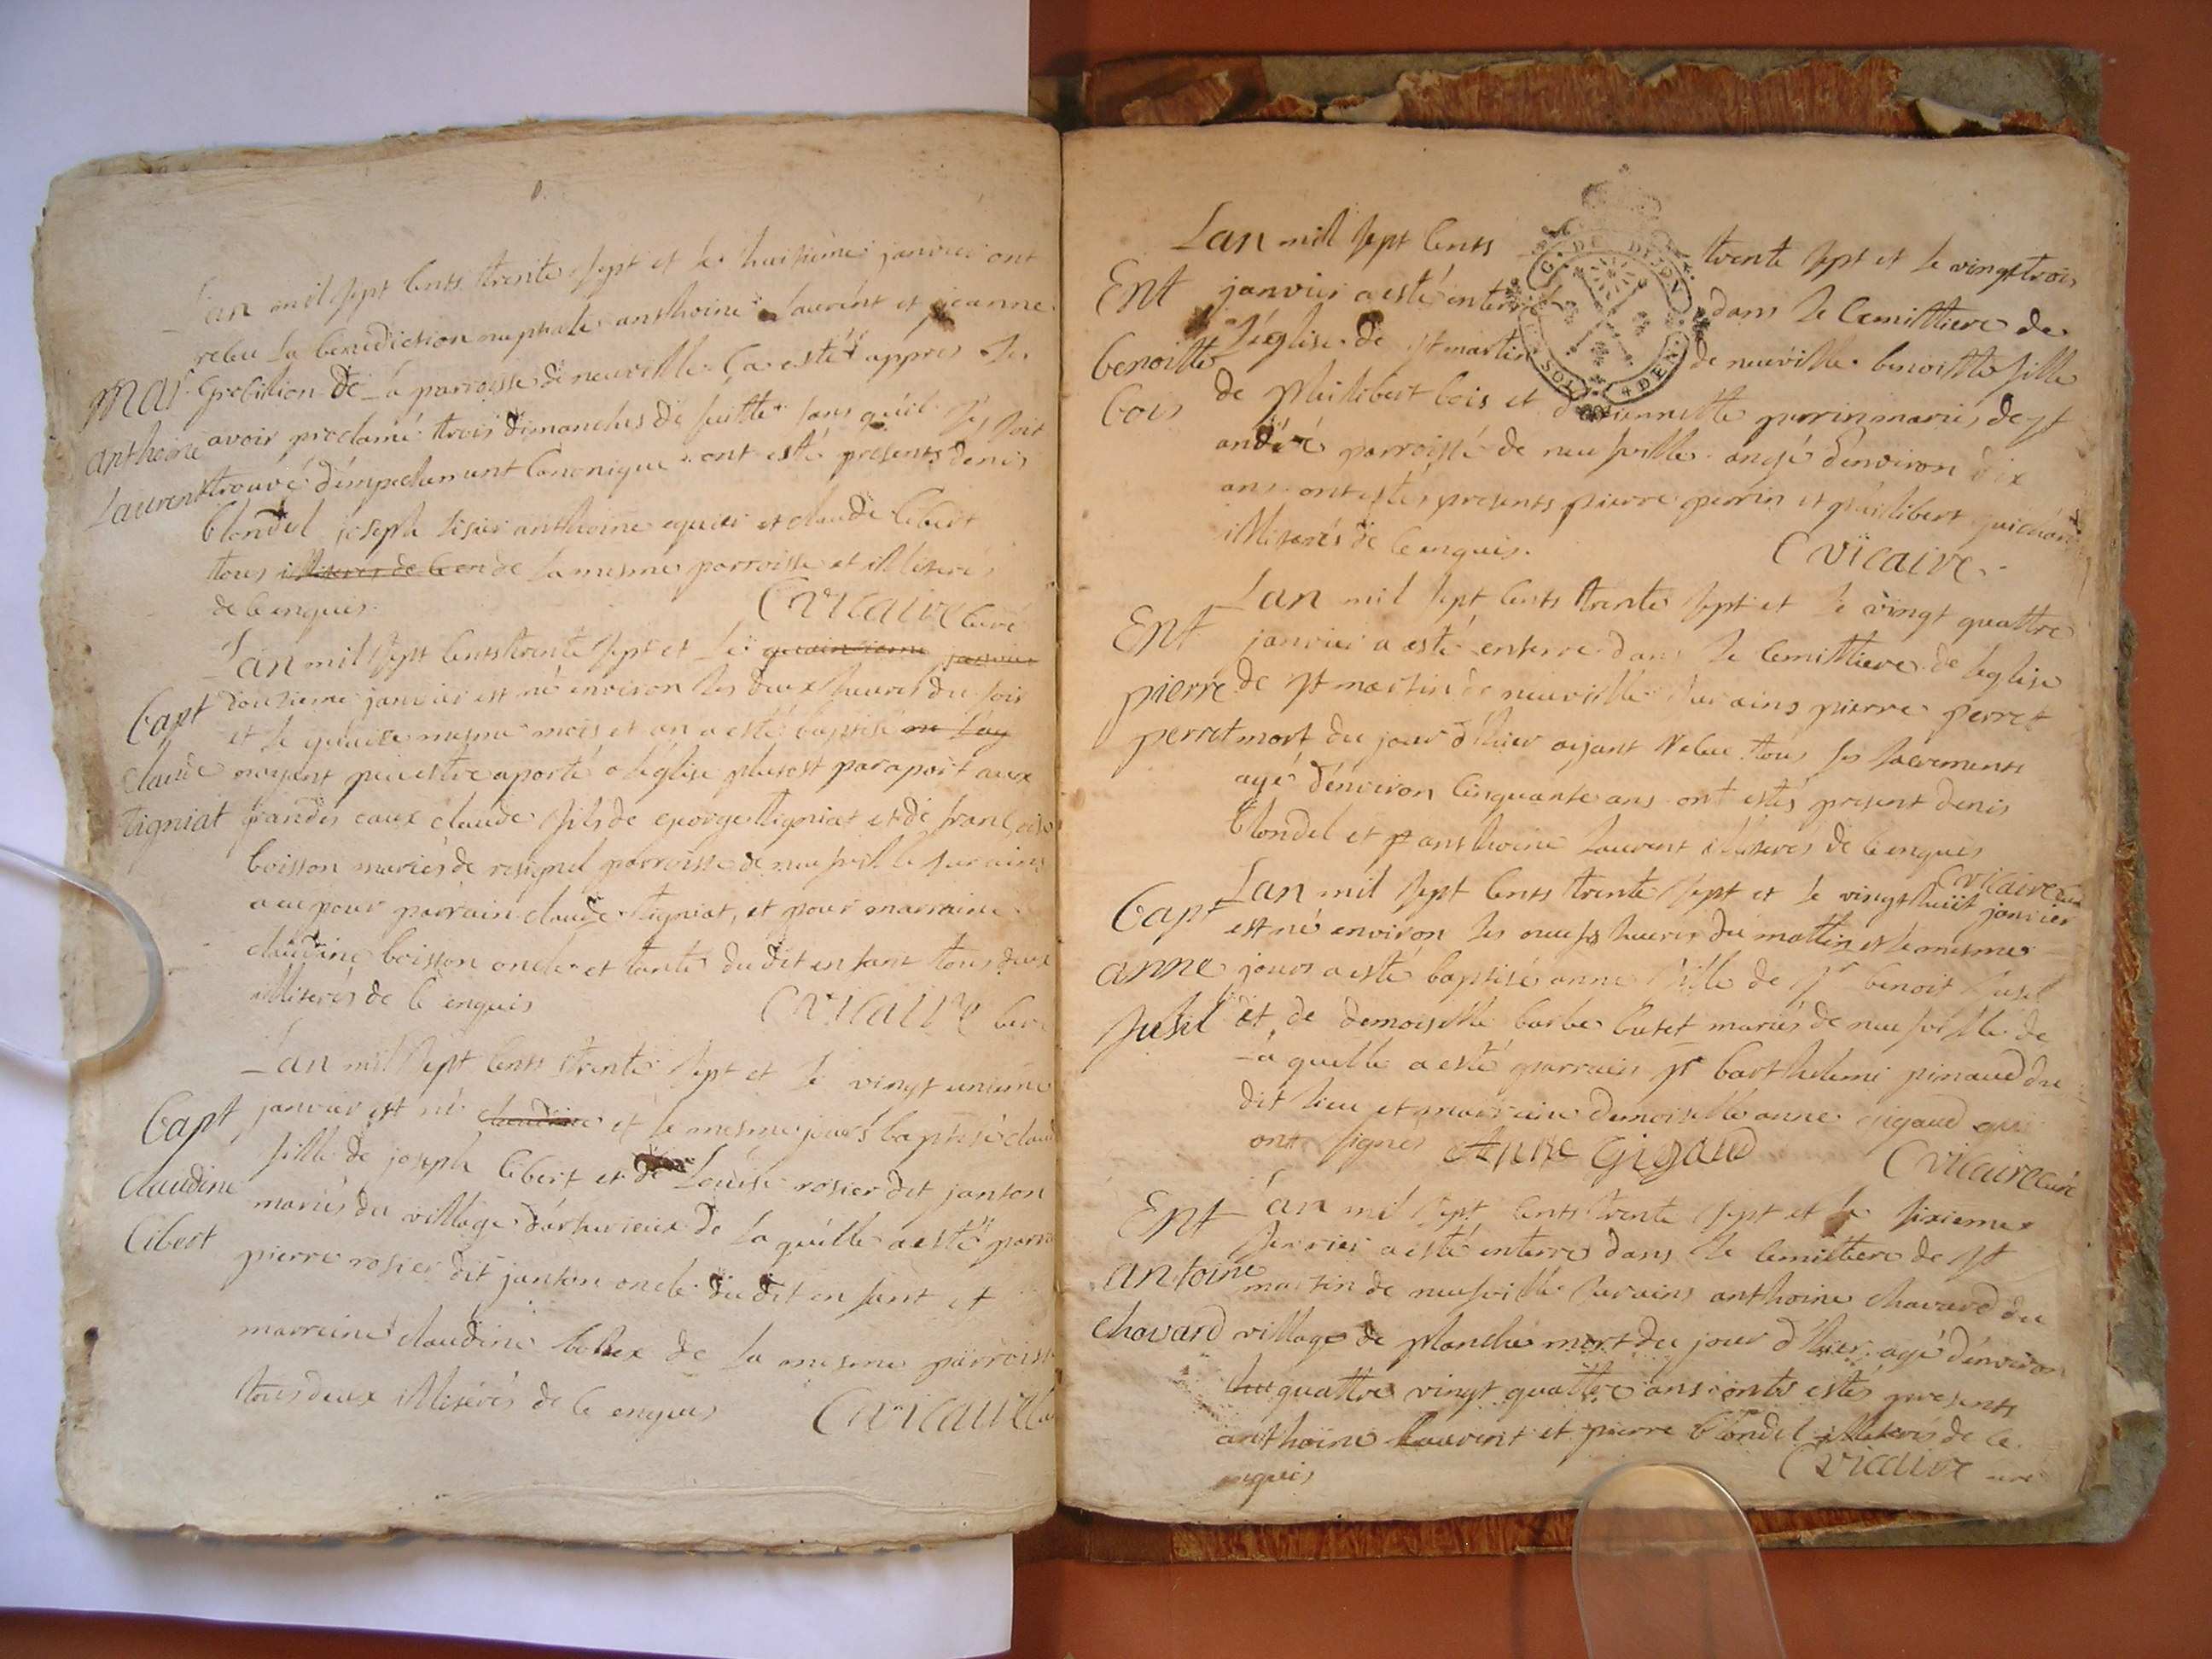 Lan mil sept cents trente sept et le huitieme janvier ont
receu la benediction nuptiale anthoine laurent et jeanne
Mar
grobilion de la parroisse de neuville ca esté appres les
anthoine
avoir proclamé trois dimanches de suitte sans quil sÿ soit
laurent
trouvé d'empechement Canonique ont esté presents denis
blondel joseph anthoine et claude Cibert
tous de la mesme parroisse et illiterés
de ce enquis
Cvicaire Curé
Lan mil sept cents trente sept et le
Bapt
douzieme janvier est né environ les deux heures du soir
et le quinze mesme mois et an a esté baptisé
claude
noyant peu estre aporté a léglise plutost par aport aux
Tigniat
grandes eaux claude fils de george tigniat et de francoise
boisson mariés de resignel parroisse de neufville sur ains
a eu pour parrain claude tigniat, et pour marraine
claudine boisson oncle et tante du dit enfant tous deux
illiterés de ce enquis
Cvicaire Curé
Lan mil sept cents trente sept et le vingt unieme
Bapt
janvier est né et le mesme jours baptisé claud
fille de joseph Cibert et de Louise rosier dit janton
claudine
mariés du village de laquelle a esté parra
Cibert
pierre rosier dit janton oncle du dit enfant et
marreine claudine de la mesme parroisse
tous deux illiterés de ce enquis
Cvicaire Cu
Lan mill sept cents trente sept et le vingt trois
Ent
janvier a esté enterré dans le Cemittiere de
léglise de st martin de neuville benoitte fille
benoitte
de philibert bois et perrin mariés de st
bois
andré parroisse de neufville angé d'environ dix
ans ont estés presents pierre perrin et philibert
illiterés de ce enquis.
Cvicaire
Lan mil sept cents trente sept et le vingt quattre
Ent
janvier a esté enterre dans le Cemittiere de leglise
pierre
de st martin de neuville sur ains pierre perret
perret
mort du jour d'hier aÿant receu tous ses sacrements
agé d'environ Cinquante ans ont estés present denis
blondel et anthoine laurent illiterés de ce enquis
Cvicaire
Bapt
Lan mil sept cents trente sept et le vingt huit janvier
est né environ les neuf heures du mattin et le mesme
anne
jours a esté baptisé anne fille de sr benoit
et de demoiselle barbe mariés de neufville de
laquelle a esté parrain sr barthelemi pinaud du
dit lieu et marreine demoiselle anne gigaud qui
ont signés Anne Gigaud
Cvicaire Curé
Ent
Lan mil sept cents trente sept et le sixieme
fevrier a esté enterre dans le Cemittiere de st
antoine
martin de neufville sur ains anthoine chavard du
chavard
village de planche mort du jour d'hier agé d'environ
quattre vingt quattre ans ont estés presents
anthoine laurent et pierre blondel illiterés de ce
enquis
Cvicaire curé